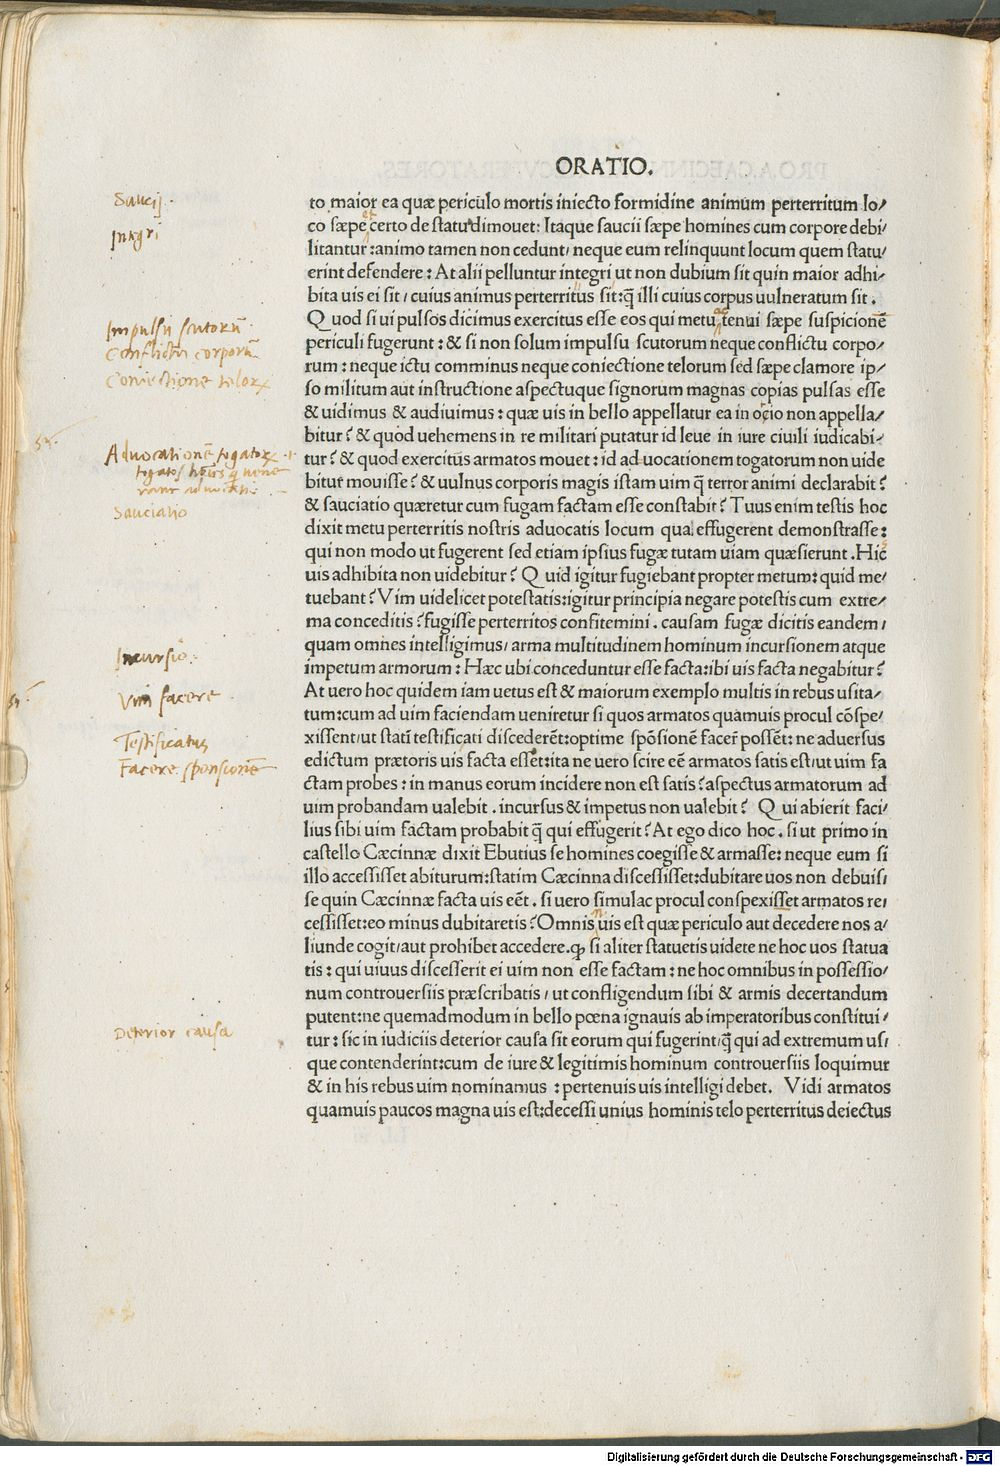 ORATIO.
to maior ea quæ periculo mortis iniecto formidine animum perterritum lo/
co sæpe et certo de statu dimouet: Itaque saucii sæpe homines cum corpore debi/
litantur: animo tamen non cedunt/ neque eum relinquunt locum quem statu/
erint defendere: At alii pelluntur integri ut non dubium sit quin maior adhi/
bita uis ei sit/ cuius animus perterritus sit: q̃ illi cuius corpus uulneratum sit.
Quod si ui pulsos dicimus exercitus esse eos qui metu ac tenui sæpe suspicionẽ
periculi fugerunt: & si non solum impulsu scutorum neque conflictu corpo/
rum: neque ictu comminus neque coniectione telorum sed sæpe clamore ip/
so militum aut instructione aspectuque signorum magnas copias pulsas esse
& uidimus & audiuimus: quæ uis in bello appellatur ea in ocio non appella/
bitur? & quod uehemens in re militari putatur id leue in iure ciuili iudicabi/
tur? & quod exercitus armatos mouet: id aduocationem togatorum non uide
bitur mouisse? & uulnus corporis magis istam uim q̃ terror animi declarabit?
& sauciatio quæretur cum fugam factam esse constabit? Tuus enim testis hoc
dixit metu perterritis nostris aduocatis locum qua effugerent demonstrasse:
qui non modo ut fugerent sed etiam ipsius fugæ tutam uiam quæsierunt. Hic
uis adhibita non uidebitur? Quid igitur fugiebant propter metum: quid me/
tuebant? Vim uidelicet potestatis: igitur principia negare potestis cum extre/
ma conceditis? fugisse perterritos confitemini. causam fugæ dicitis eandem/
quam omnes intelligimus/ arma multitudinem hominum incursionem atque
impetum armorum: Hæc ubi conceduntur esse facta: ibi uis facta negabitur?
At uero hoc quidem iam uetus est & maiorum exemplo multis in rebus usita/
tum: cum ad uim faciendam ueniretur si quos armatos quamuis procul cõspe/
xissent/ ut statĩ testificati discederẽt: optime spõsionẽ facer̃ possẽt: ne aduersus
edictum prætoris uis facta esset: ita ne uero scire eẽ armatos satis est/ ut uim fa
ctam probes: in manus eorum incidere non est satis? aspectus armatorum ad
uim probandam ualebit. incursus & impetus non ualebit? Qui abierit faci/
lius sibi uim factam probabit q̃ qui effugerit? At ego dico hoc. si ut primo in
castello Cæcinnæ dixit Ebutius se homines coegisse & armasse: neque eum si
illo accessisset abiturum: statim Cæcinna discessisset: dubitare uos non debuis/
se quin Cæcinnæ facta uis eẽt. si uero simulac procul conspexisset armatos re/
cessisset: eo minus dubitaretis? Omnis n uis est quæ periculo aut decedere nos a/
liunde cogit/ aut prohibet accedere. ꝙ si aliter statuetis uidete ne hoc uos statua
tis: qui uiuus discesserit ei uim non esse factam: ne hoc omnibus in possessio/
num controuersiis præscribatis/ ut confligendum sibi & armis decertandum
putent: ne quemadmodum in bello pœna ignauis ab imperatoribus constitui/
tur: sic in iudiciis deterior causa sit eorum qui fugerint/ q̃ qui ad extremum us/
que contenderint: cum de iure & legitimis hominum controuersiis loquimur
& in his rebus uim nominamus: pertenuis uis intelligi debet. Vidi armatos
quamuis paucos magna uis est: decessi unius hominis telo perterritus deiectus
Saucij.
Integri
Impulsu scutorũ.
Conflictu corporũ
Coniectione telorꝝ
Aduocationẽ togatorꝝ
Sauciatio
Incursio.
Vim facere
Testificatus
Facere sponsionẽ
Deterior causa
Digitalisierung gefördert durch die Deutsche Forschungsgemeinschaft - DFG